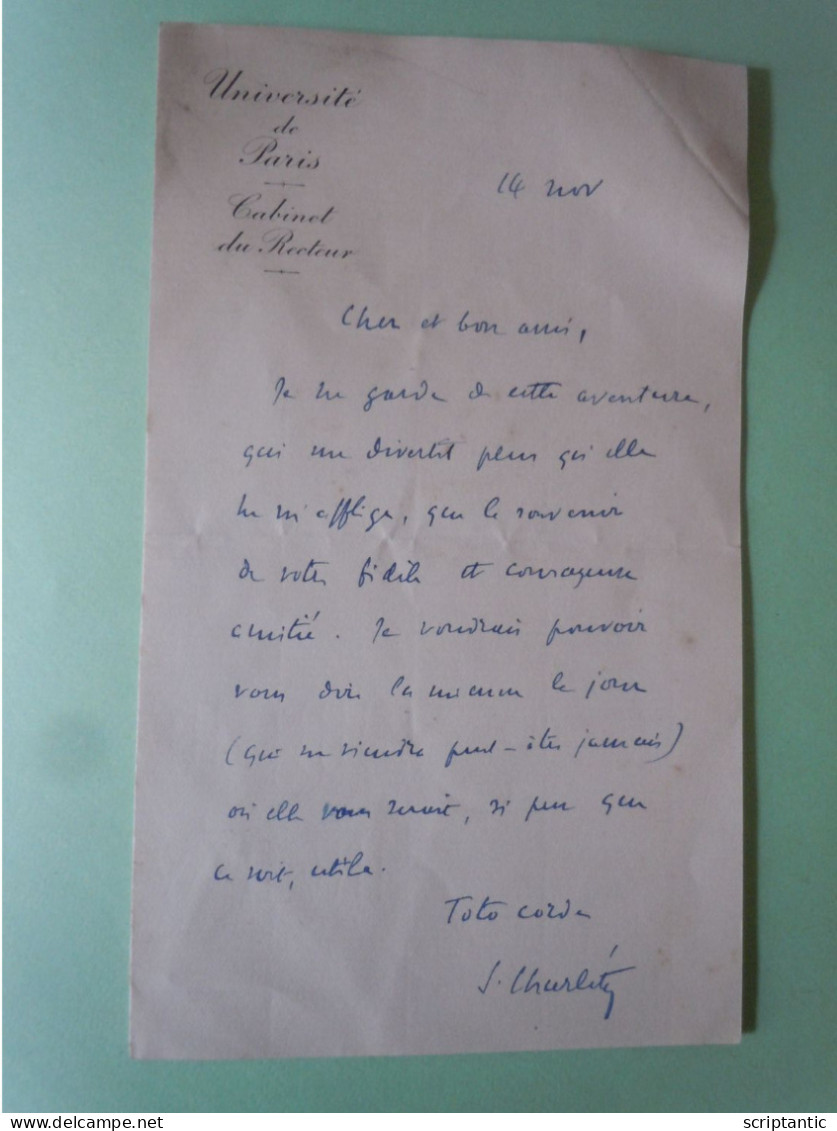 Université
de
Paris
Cabinet
du Recteur
14 nov
Cher et bon ami,
Je ne garde de cette aventure,
qui me divertit plus qu'elle
ne m'afflige, que le souvenir
de votre fidèle et courageuse
amitié. Je voudrais pouvoir
vous dire la mienne le jour
(qui ne viendra peut-être jamais)
où elle vous serait, si peu que
ce soit, utile.
Toto corde
S. Charléty
scriptantic